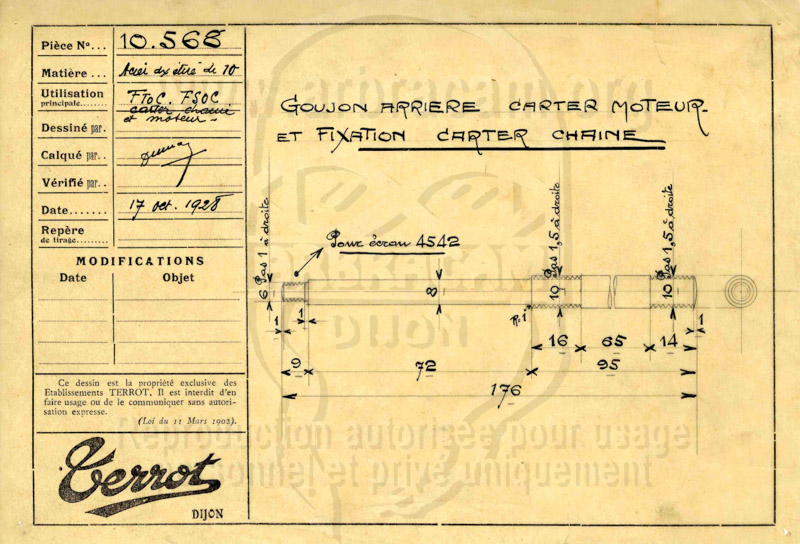 Pièce No... 10.568
Matière ... Acier dx étiré de 10
Utilisation
principale........ FToC. FSOC
carter chaine
et moteur -
Dessiné par.
Calqué par..
Vérifié par..
Date....... 17 oct. 1928
Repère
de tirage......
MODIFICATIONS
Date Objet
Ce dessin est la propriété exclusive des
Etablissements TERROT. Il est interdit d'en
faire usage ou de le communiquer sans autori-
sation expresse.
(Loi du 11 Mars 1902).
Terrot
DIJON
GOUJON ARRIERE CARTER MOTEUR-
ET FIXATION CARTER CHAINE
Pour écrou 4542
6 Pas 1 à droite
8
10 Pas 1,5 à droite
10 Pas 1,5 à droite
R.1
1
1
1
16 65 14
9 72 95
176
www.arbracam.org
ARBRACAM
DIJON
Reproduction autorisée pour usage
personnel et privé uniquement